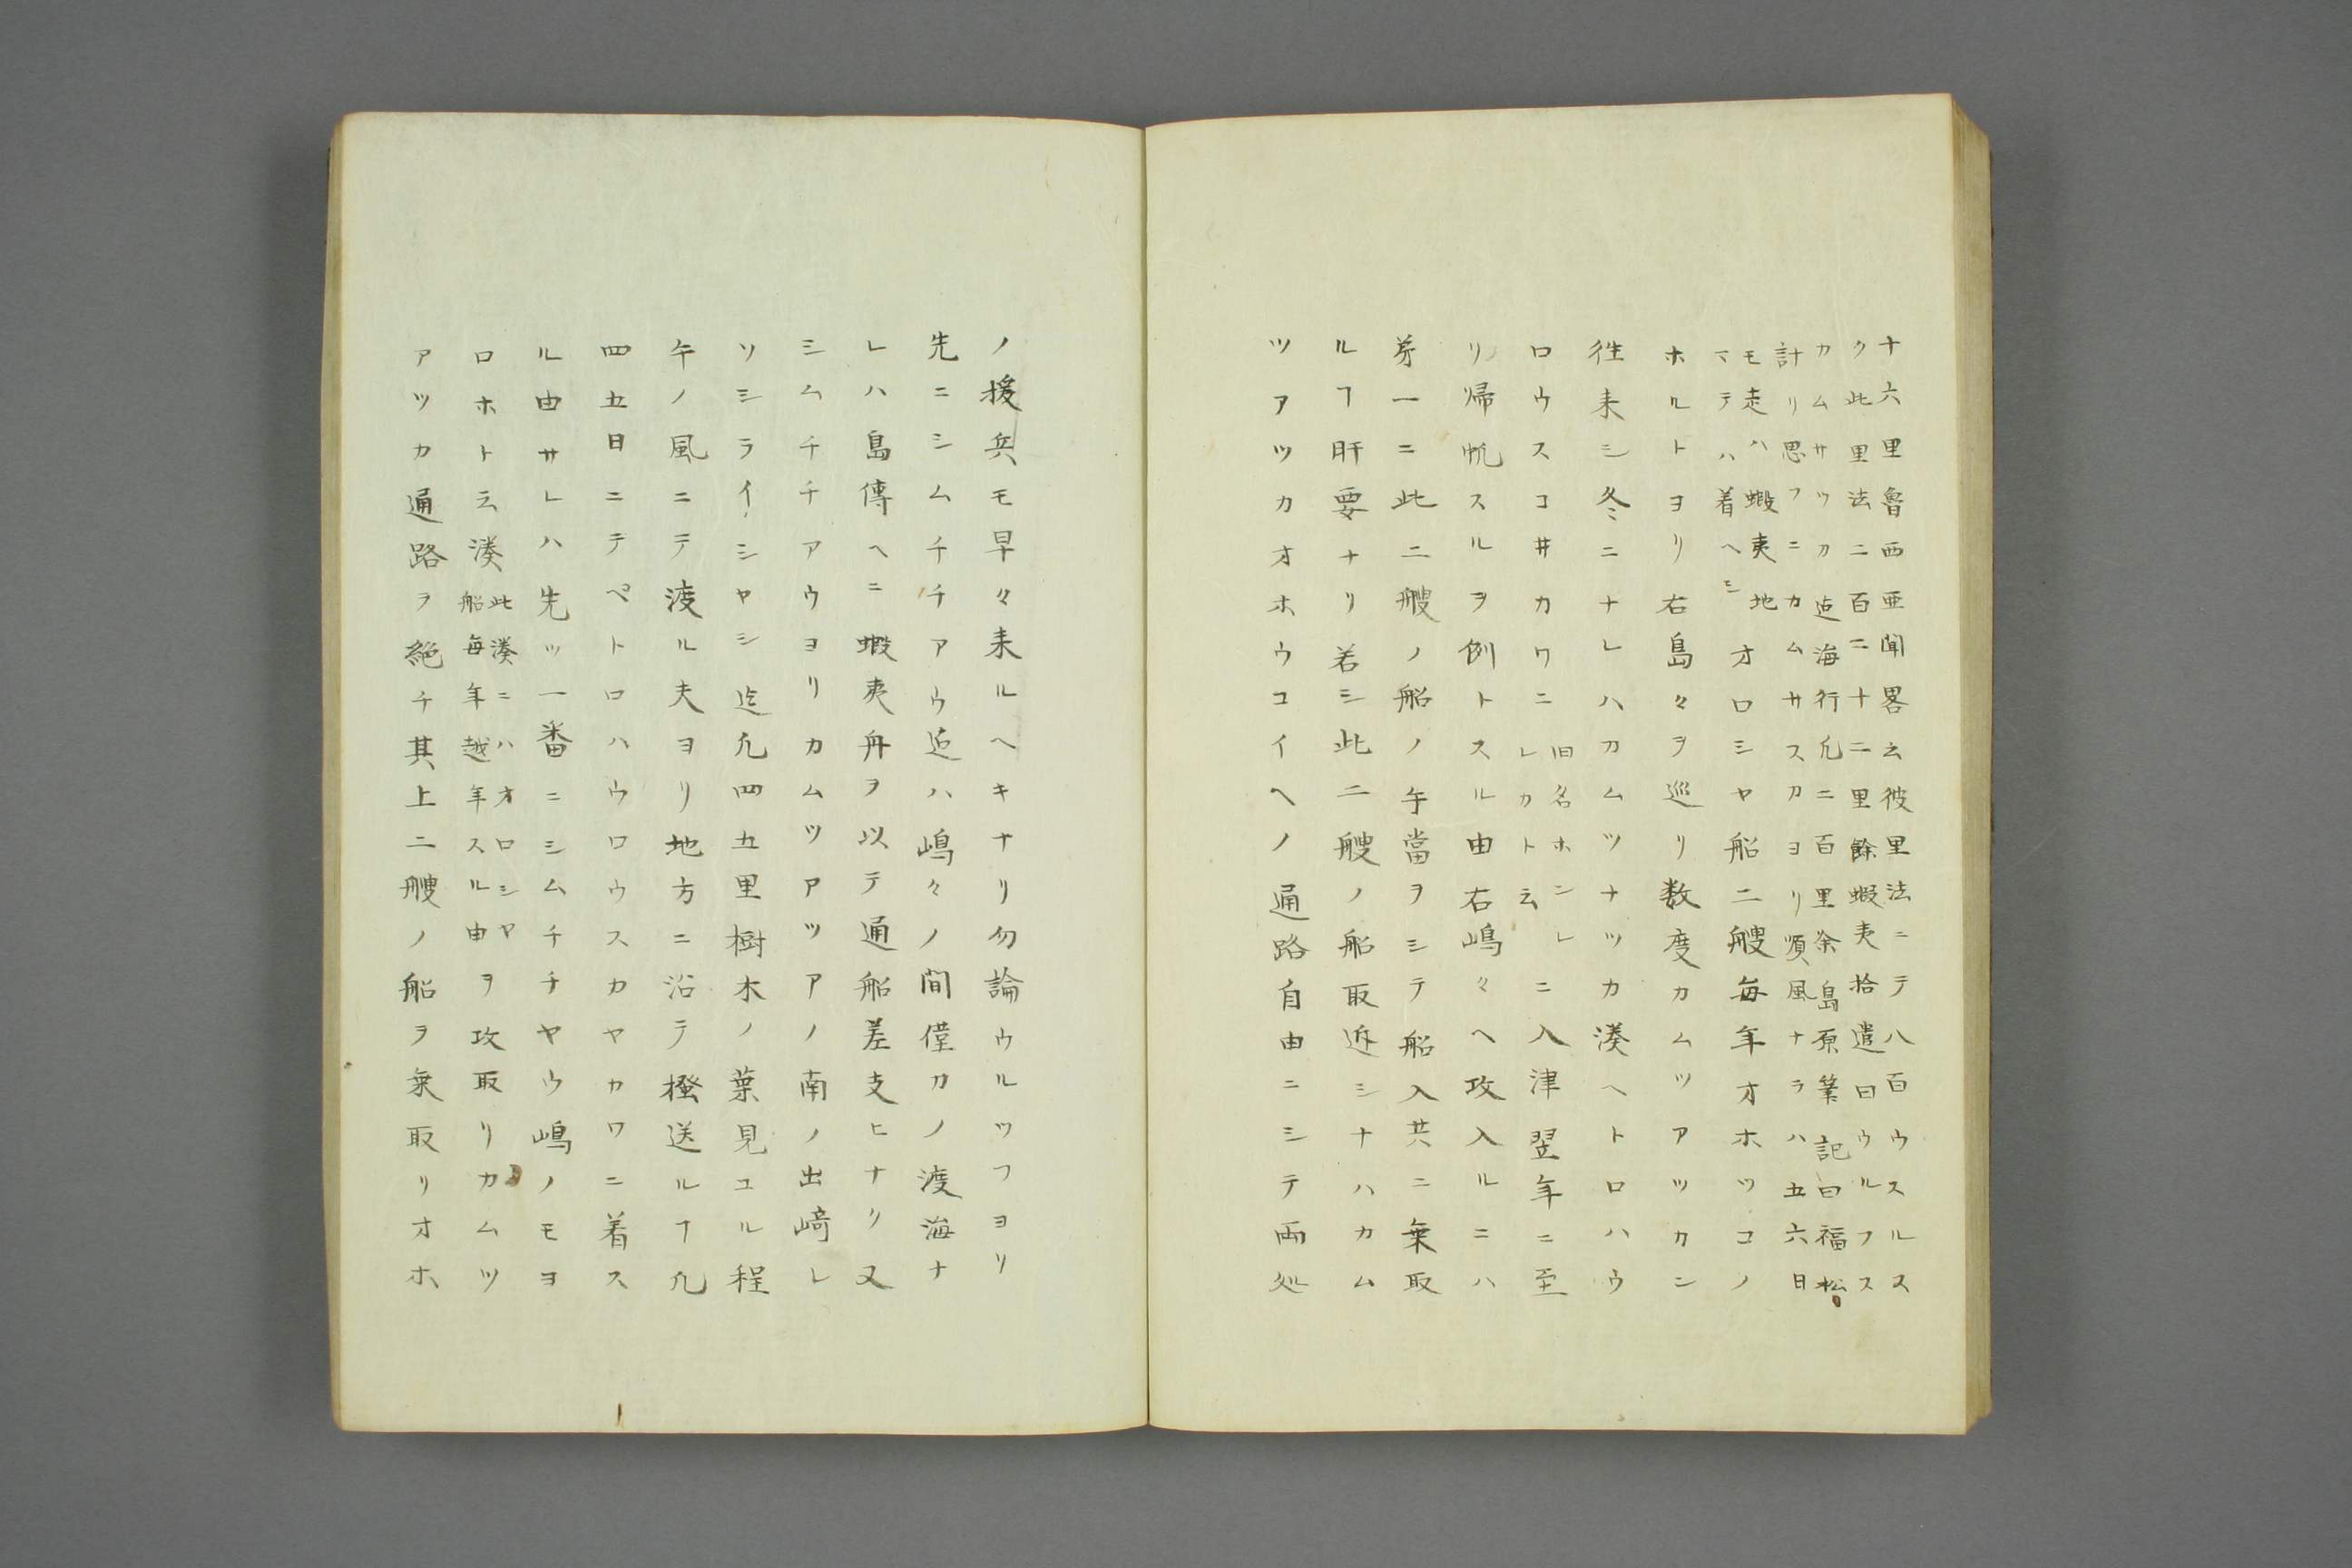 十六里魯西亜聞畧云彼里法ニテ八百ウスルス
ク此里法二百二十二里餘蝦夷拾遺曰ウルフス
カムサツカ迠海行凢ニ百里余島原筆記曰福松
計リ思フニカムサスカヨリ順風ナラハ五六日
モ走ハ蝦夷地
マテハ着ヘシ
オロシヤ船二艘毎年オホツコノ
ホルトヨリ右島々ヲ巡リ数度カムツアツカン
徃来シ冬ニナレハカムツナツカ湊ヘトロハウ
ロウスコ井カワニ
旧名ホンレ
レカト云
ニ入津翌年ニ至
リ帰帆スルヲ例トスル由右嶋々ヘ攻入ルニハ
第一ニ此二艘ノ船ノ午當ヲシテ船入共ニ乗取
ルヿ肝要ナリ若シ此二艘ノ船取迯シナハカム
ツアツカオホウコイヘノ通路自由ニシテ両処
ノ援兵モ早々来ルヘキナリ勿論ウルツフヨリ
先ニシムチチアウ迠ハ嶋々ノ間僅カノ渡海ナ
レハ島傳ヘニ蝦夷舟ヲ以テ通船差支ヒナリ又
シムチチアウヨリカムツアツアノ南ノ出﨑レ
ソシライシヤシ迠凢四五里樹木ノ葉見ユル程
午ノ風ニテ渡ル夫ヨリ地方ニ沿テ橃送ルヿ凢
四五日ニテペトロハウロウスカヤカワニ着ス
ル由サレハ先ツ一番ニシムチチヤウ嶋ノモヨ
ロホト云湊
此湊ニハオロシヤ
船毎年越年スル由
ヲ攻取リカムツ
アツカ通路ヲ絶チ其上二艘ノ船ヲ乗取リオホ